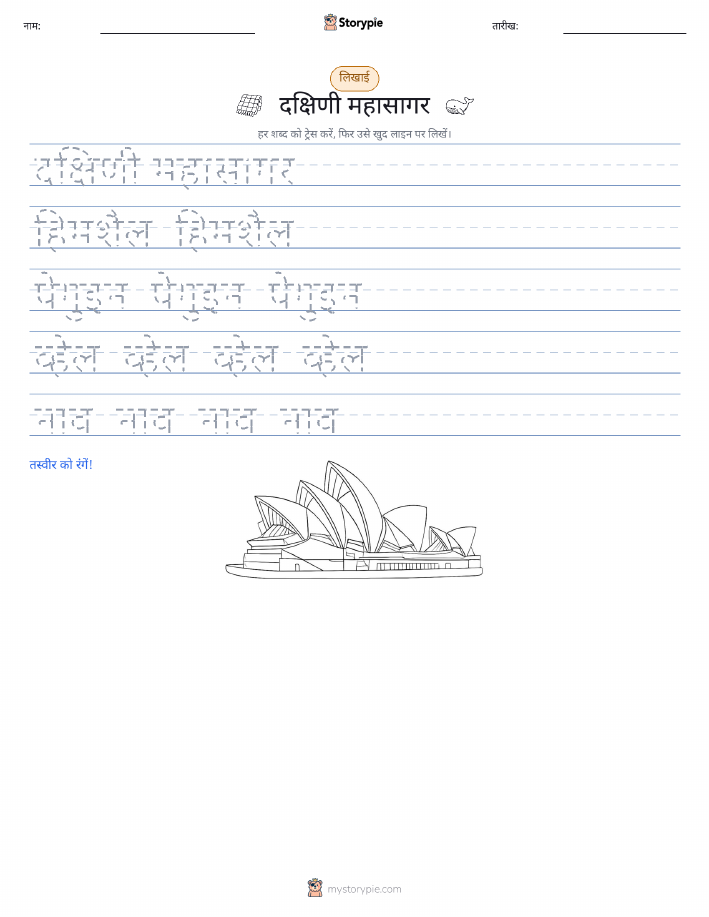 नाम:
Storypie
तारीख:
लिखाई
दक्षिणी महासागर
हर शब्द को ट्रेस करें, फिर उसे खुद लाइन पर लिखें।
दक्षिणी महासागर
हिमशैल हिमशैल
पेंगुइन पेंगुइन पेंगुइन
व्हेल व्हेल व्हेल व्हेल
नाव नाव नाव नाव
तस्वीर को रंगें!
mystorypie.com